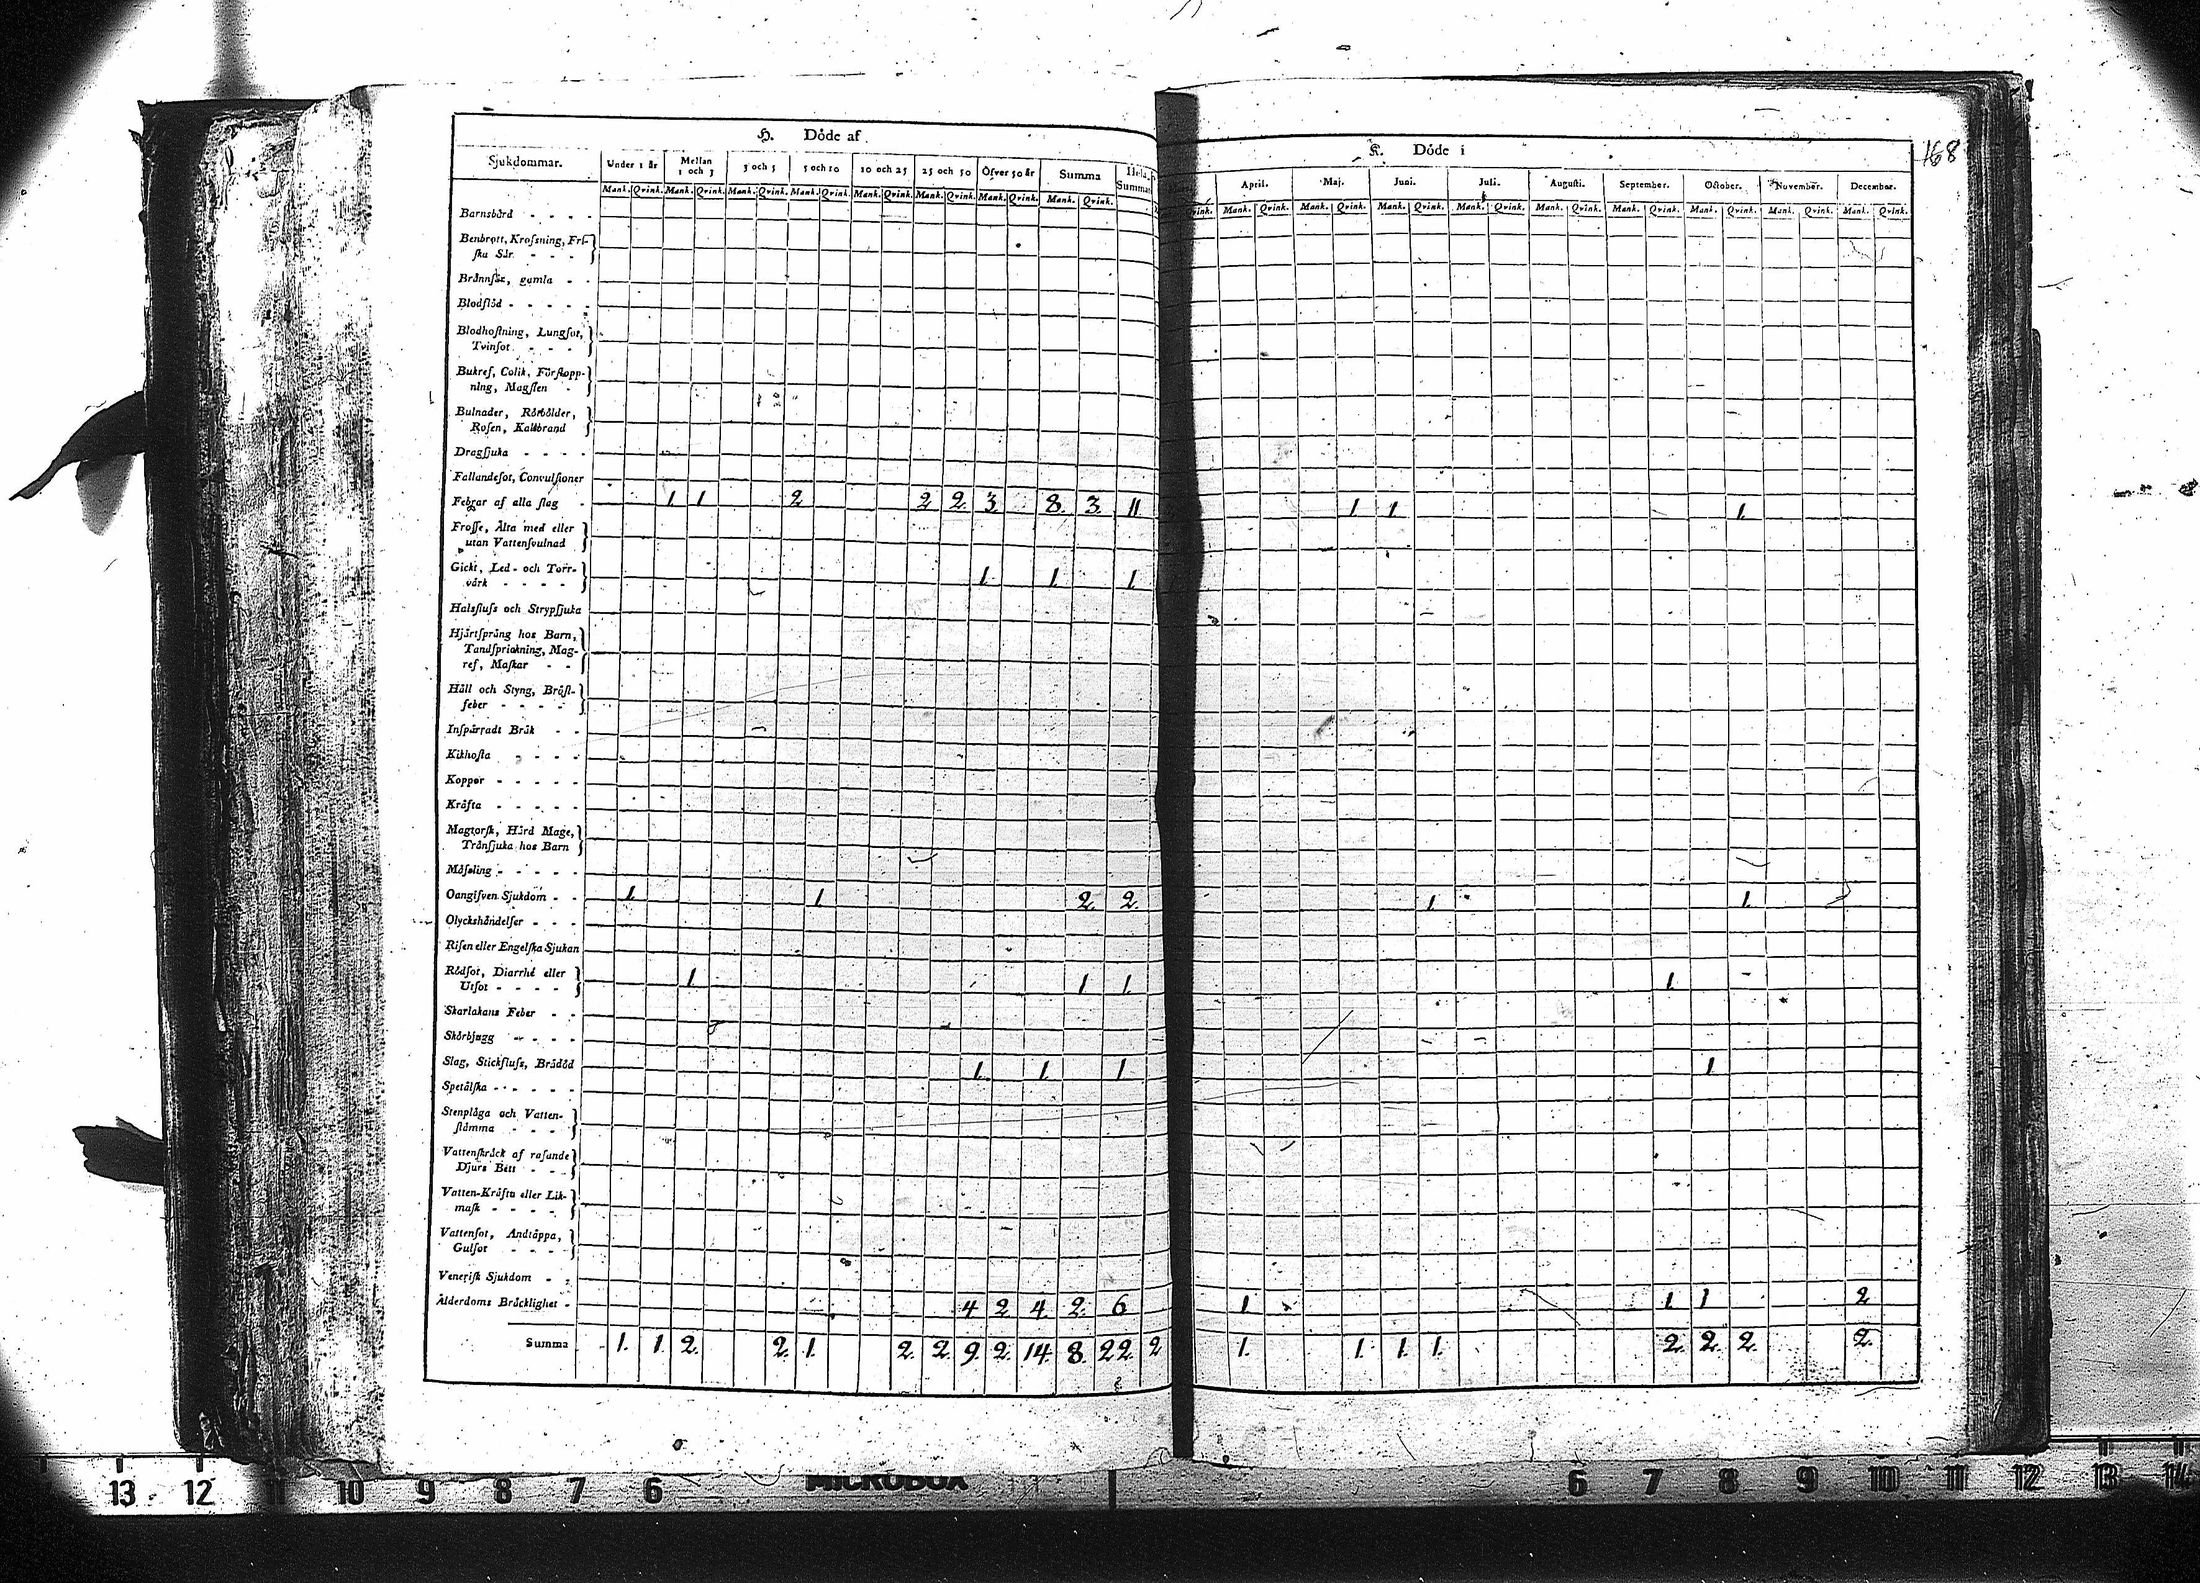 H. Döde af
Sjukdommar. Under 1 år Mellan 1 och 3 3 och 5 5 och 10 10 och 25 25 och 50 Öfver 50 år Summa Hela Summan
Mank. Qvink. Mank. Qvink. Mank. Qvink. Mank. Qvink. Mank. Qvink. Mank. Qvink. Mank. Qvink. Mank. Qvink.
Barnsbörd - - - -
Benbrott, Krosſning, Friſ-
ſka Sår. - - - -
Brännſår, gamla - -
Blodflöd - - - - -
Blodhoſtning, Lungſot,
Tvinſot - - - -
Bukref, Colik, Förſtopp-
ning, Magſten -
Bulnader, Rötbölder,
Roſen, Kallbrand
Dragſjuka - - - -
Fallandeſot, Convulſioner
Febrar af alla ſlag - 1 1 2 2 2. 3. 8. 3. 11
Froſſe, Älta med eller
utan Vattenſvulnad
Gickt, Led- och Torr-
värk - - - - 1. 1. 1.
Halsfluſs och Strypſjuka
Hjärtſprång hos Barn,
Tandſprickning, Mag-
ref, Maſkar - -
Håll och Styng, Bröſt-
feber - - - -
Inſpärradt Bråk - -
Kikhoſta - - - -
Koppor - - - - -
Kräfta - - - - -
Magtorſk, Hård Mage,
Tränſjuka hos Barn
Måſsling - - - - -
Oangifven Sjukdom - - 1. 1. 2. 2.
Olyckshändelſer - - -
Riſen eller Engelſka Sjukan
Rödſot, Diarrhé eller
Utſot - - - - 1 1 1.
Skarlakans Feber - -
Skörbjugg - - - -
Slag, Stickfluſs, Brådöd 1. 1. 1
Spetälſka - - - - -
Stenplåga och Vatten-
ſtämma - - - -
Vattenſkräck af raſande
Djurs Bett - - -
Vatten-Kräfta eller Lik-
maſk - - - -
Vattenſot, Andtäppa,
Gulſot - - - -
Veneriſk Sjukdom - -
Ålderdoms Bräcklighet - 4 2 4. 2. 6
Summa 1. 1 2. 2. 1. 2. 2. 9. 2. 14. 8. 22. 2
K. Döde i
168
April. Maj. Juni. Juli. Auguſti. September. October. November. December.
Qvink. Mank. Qvink. Mank. Qvink. Mank. Qvink. Mank. Qvink. Mank. Qvink. Mank. Qvink. Mank. Qvink. Mank. Qvink. Mank. Qvink.
1 1 1.
1. 1.
1.
1
1 1. 1 2
1. 1. 1. 1. 2. 2. 2. 2.
13 12 11 10 9 8 7 6 MICROBOX 6 7 8 9 10 11 12 13 14